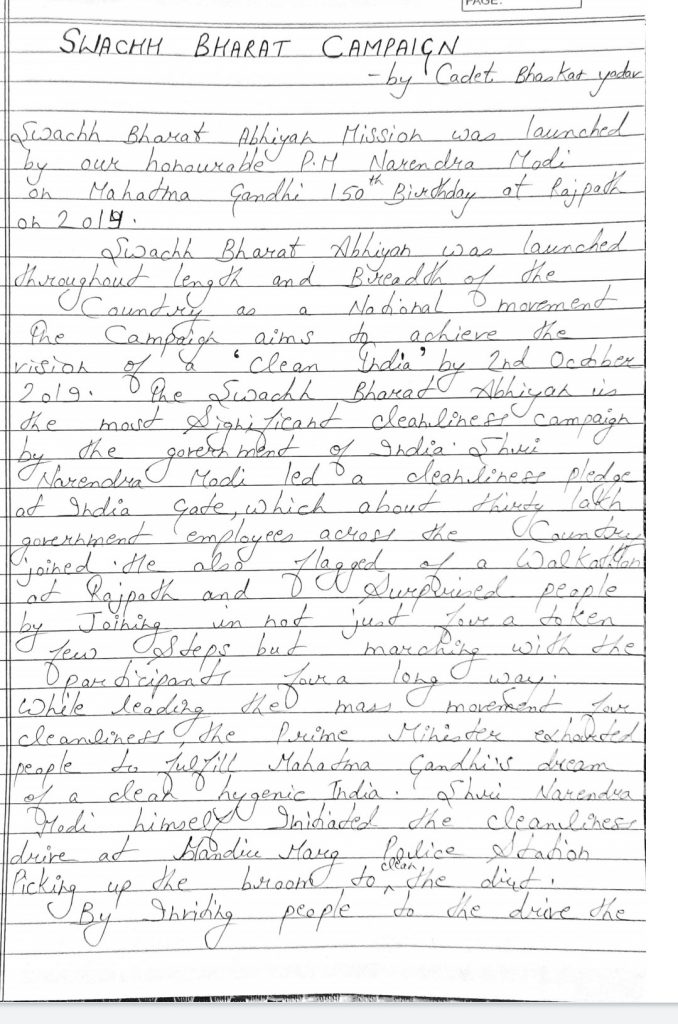 PAGE:
SWACHH BHARAT CAMPAIGN
- by Cadet Bhaskar yadav
Swachh Bharat Abhiyan Mission was launched
by our honourable P.M Narendra Modi
on Mahatma Gandhi 150th Birthday at Rajpath
on 2019.
Swachh Bharat Abhiyan was launched
throughout length and Breadth of the
Country as a National movement
The Campaign aims to achieve the
vision of a 'Clean India' by 2nd October
2019. The Swachh Bharat Abhiyan is
the most Significant cleanliness campaign
by the government of India. Shri
Narendra Modi led a cleanliness pledge
at India Gate, which about thirty lakh
government employees across the Country
joined. He also flagged of a Walkathon
at Rajpath and Surprised people
by Joining in not just for a token
few Steps but marching with the
participants for a long way.
While leading the mass movement for
cleanliness, the Prime Minister exhorted
people to fulfill Mahatma Gandhi's dream
of a clean hygenic India. Shri Narendra
Modi himself Initiated the cleanliness
drive at Mandir Marg Police Station
Picking up the broom to clean the dirt.
By Inviting people to the drive the